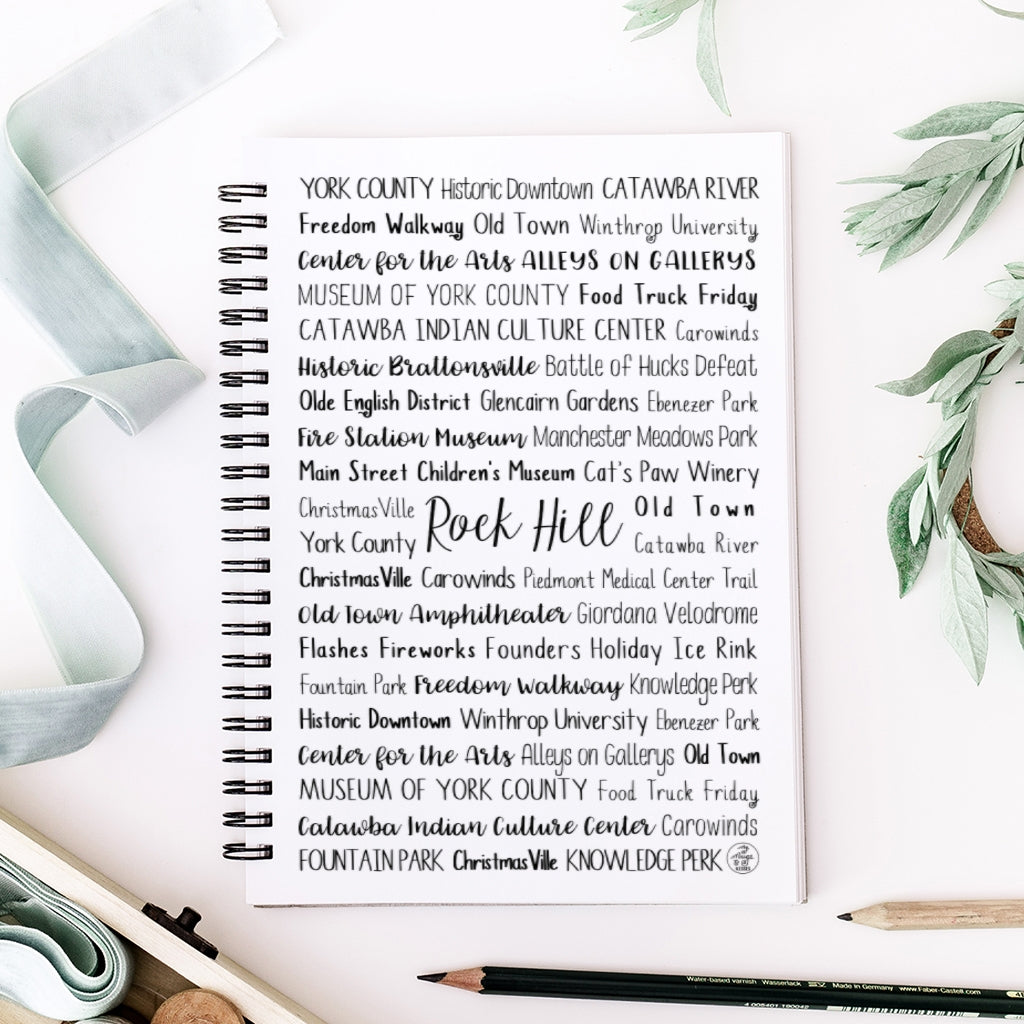 YORK COUNTY Historic Downtown CATAWBA RIVER
Freedom Walkway Old Town Winthrop University
Center for the Arts ALLEYS ON GALLERYS
MUSEUM OF YORK COUNTY Food Truck Friday
CATAWBA INDIAN CULTURE CENTER Carowinds
Historic Brattonsville Battle of Hucks Defeat
Olde English District Glencairn Gardens Ebenezer Park
Fire Station Museum Manchester Meadows Park
Main Street Children's Museum Cat's Paw Winery
ChristmasVille
York County
Rock Hill
Old Town
Catawba River
ChristmasVille Carowinds Piedmont Medical Center Trail
Old Town Amphitheater Giordana Velodrome
Flashes Fireworks Founders Holiday Ice Rink
Fountain Park Freedom Walkway Knowledge Perk
Historic Downtown Winthrop University Ebenezer Park
Center for the Arts Alleys on Gallerys Old Town
MUSEUM OF YORK COUNTY Food Truck Friday
Catawba Indian Culture Center Carowinds
FOUNTAIN PARK ChristmasVille KNOWLEDGE PERK
Water-based varnish Wasserlack Made in Germany www.Faber-Castell.com
4 005401 190042